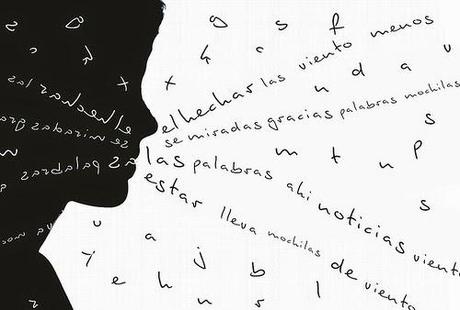 g s f
k c
x
el hechar las viento menos
n d a v
se miradas gracias palabras mochilas
s
m t n p
las palabras ahi noticias viento
s
estar lleva mochilas de viento
u a j b
y e h
n r l
el hechar las
se miradas gra
las palabras